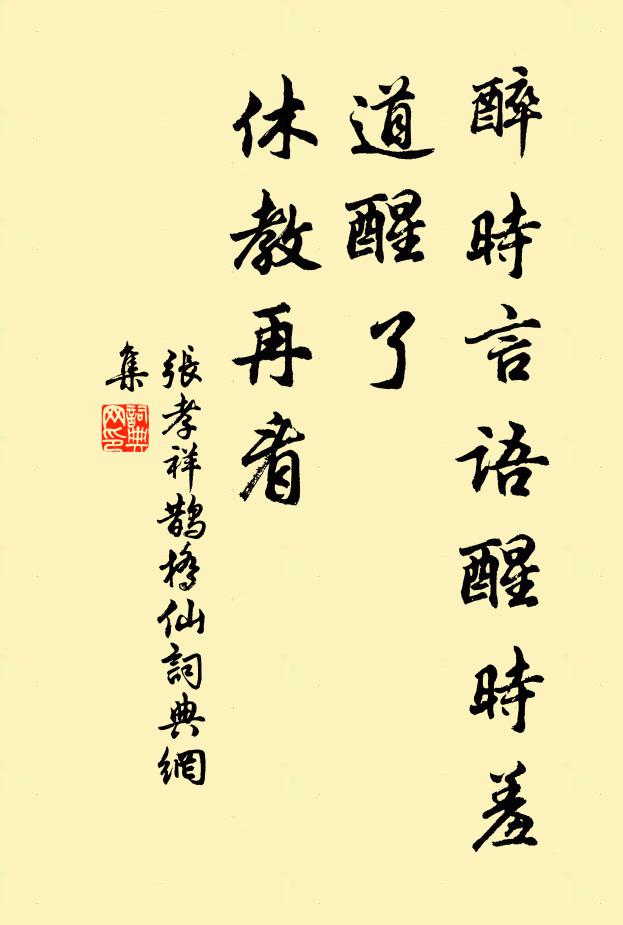 醉時言語醒時羞
道醒了
休教再看
張孝祥鵲橋仙詞典網
集
詞典
网印